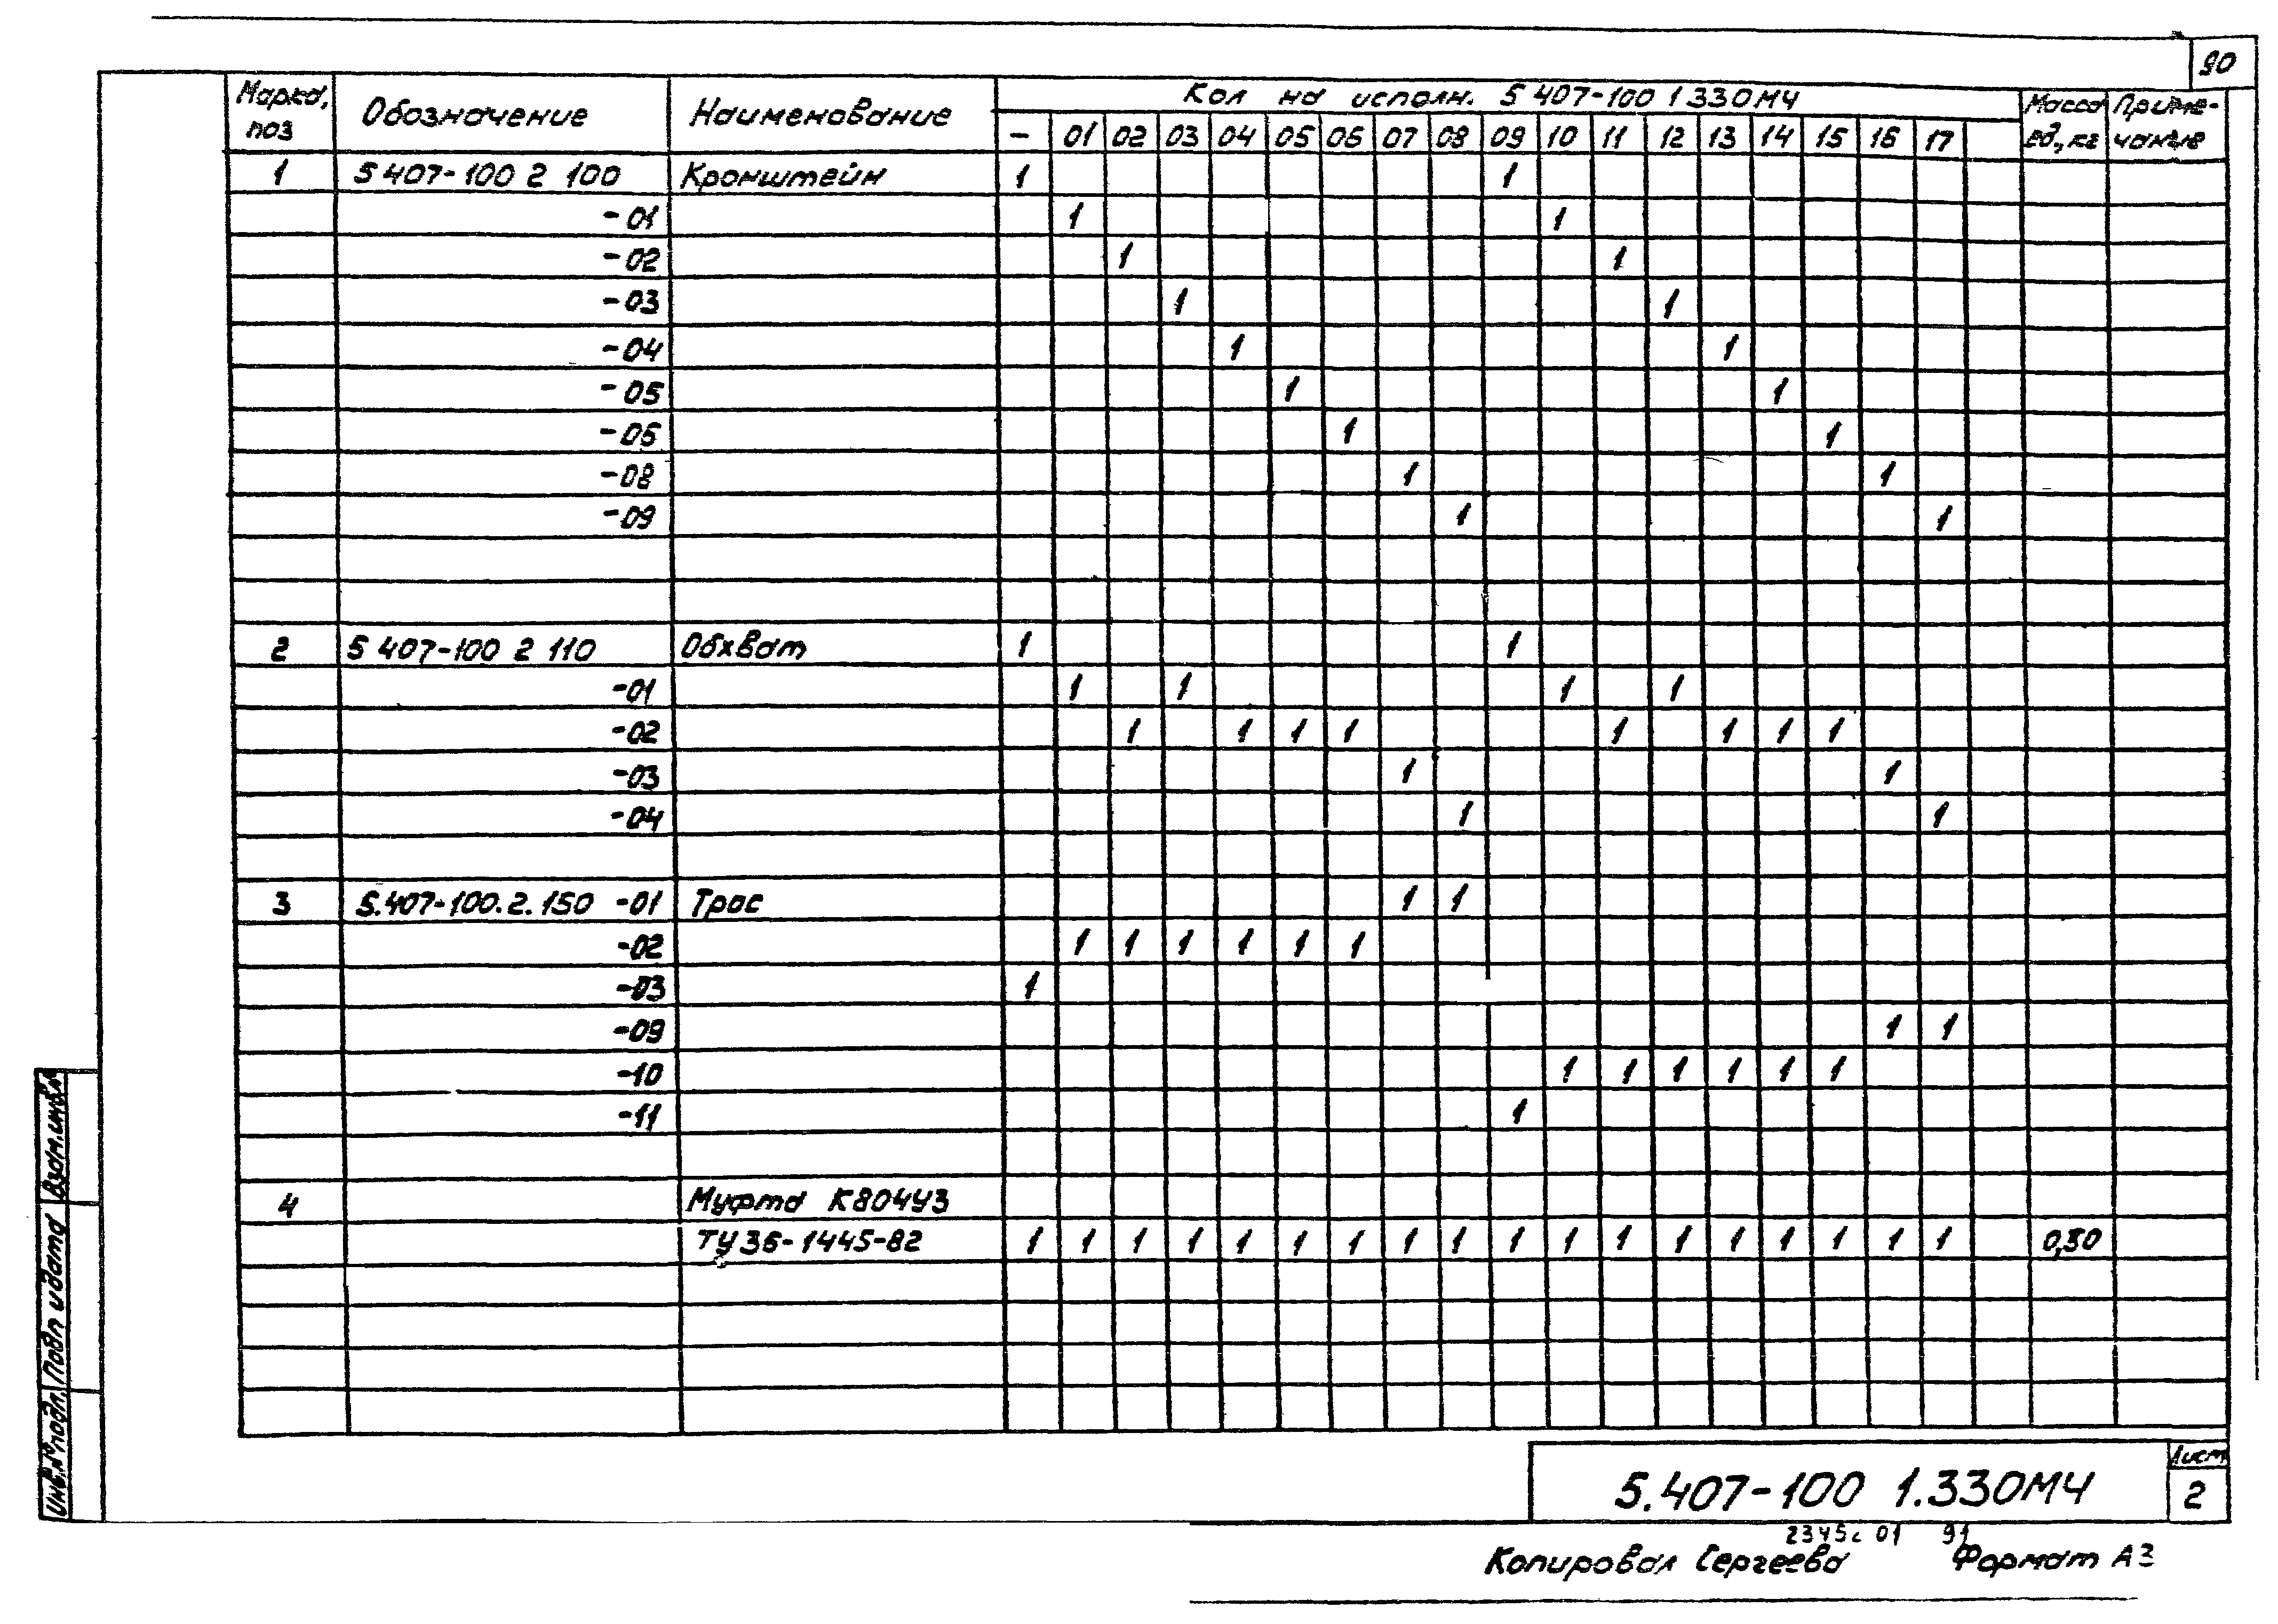 90
Марка, поз Обозначение Наименование Кол на исполн. 5 407-100 1 330МЧ Масса ед., кг Приме- чание
- 01 02 03 04 05 06 07 08 09 10 11 12 13 14 15 16 17
1 5 407-100 2 100 Кронштейн 1 1
-01 1 1
-02 1 1
-03 1 1
-04 1 1
-05 1 1
-06 1 1
-08 1 1
-09 1 1
2 5 407-100 2 110 Обхват 1 1
-01 1 1 1 1
-02 1 1 1 1 1 1 1 1
-03 1 1
-04 1 1
3 5.407-100.2.150 -01 Трос 1 1
-02 1 1 1 1 1 1
-03 1
-09 1 1
-10 1 1 1 1 1 1
-11 1
4 Муфта К804У3
ТУ36-1445-82 1 1 1 1 1 1 1 1 1 1 1 1 1 1 1 1 1 1 0,30
Взам.инв.№
Подп и дата
Инв.№подл.
5.407-100 1.330МЧ
Лист
2
2345с 01 91
Копировал Сергеева Формат А3